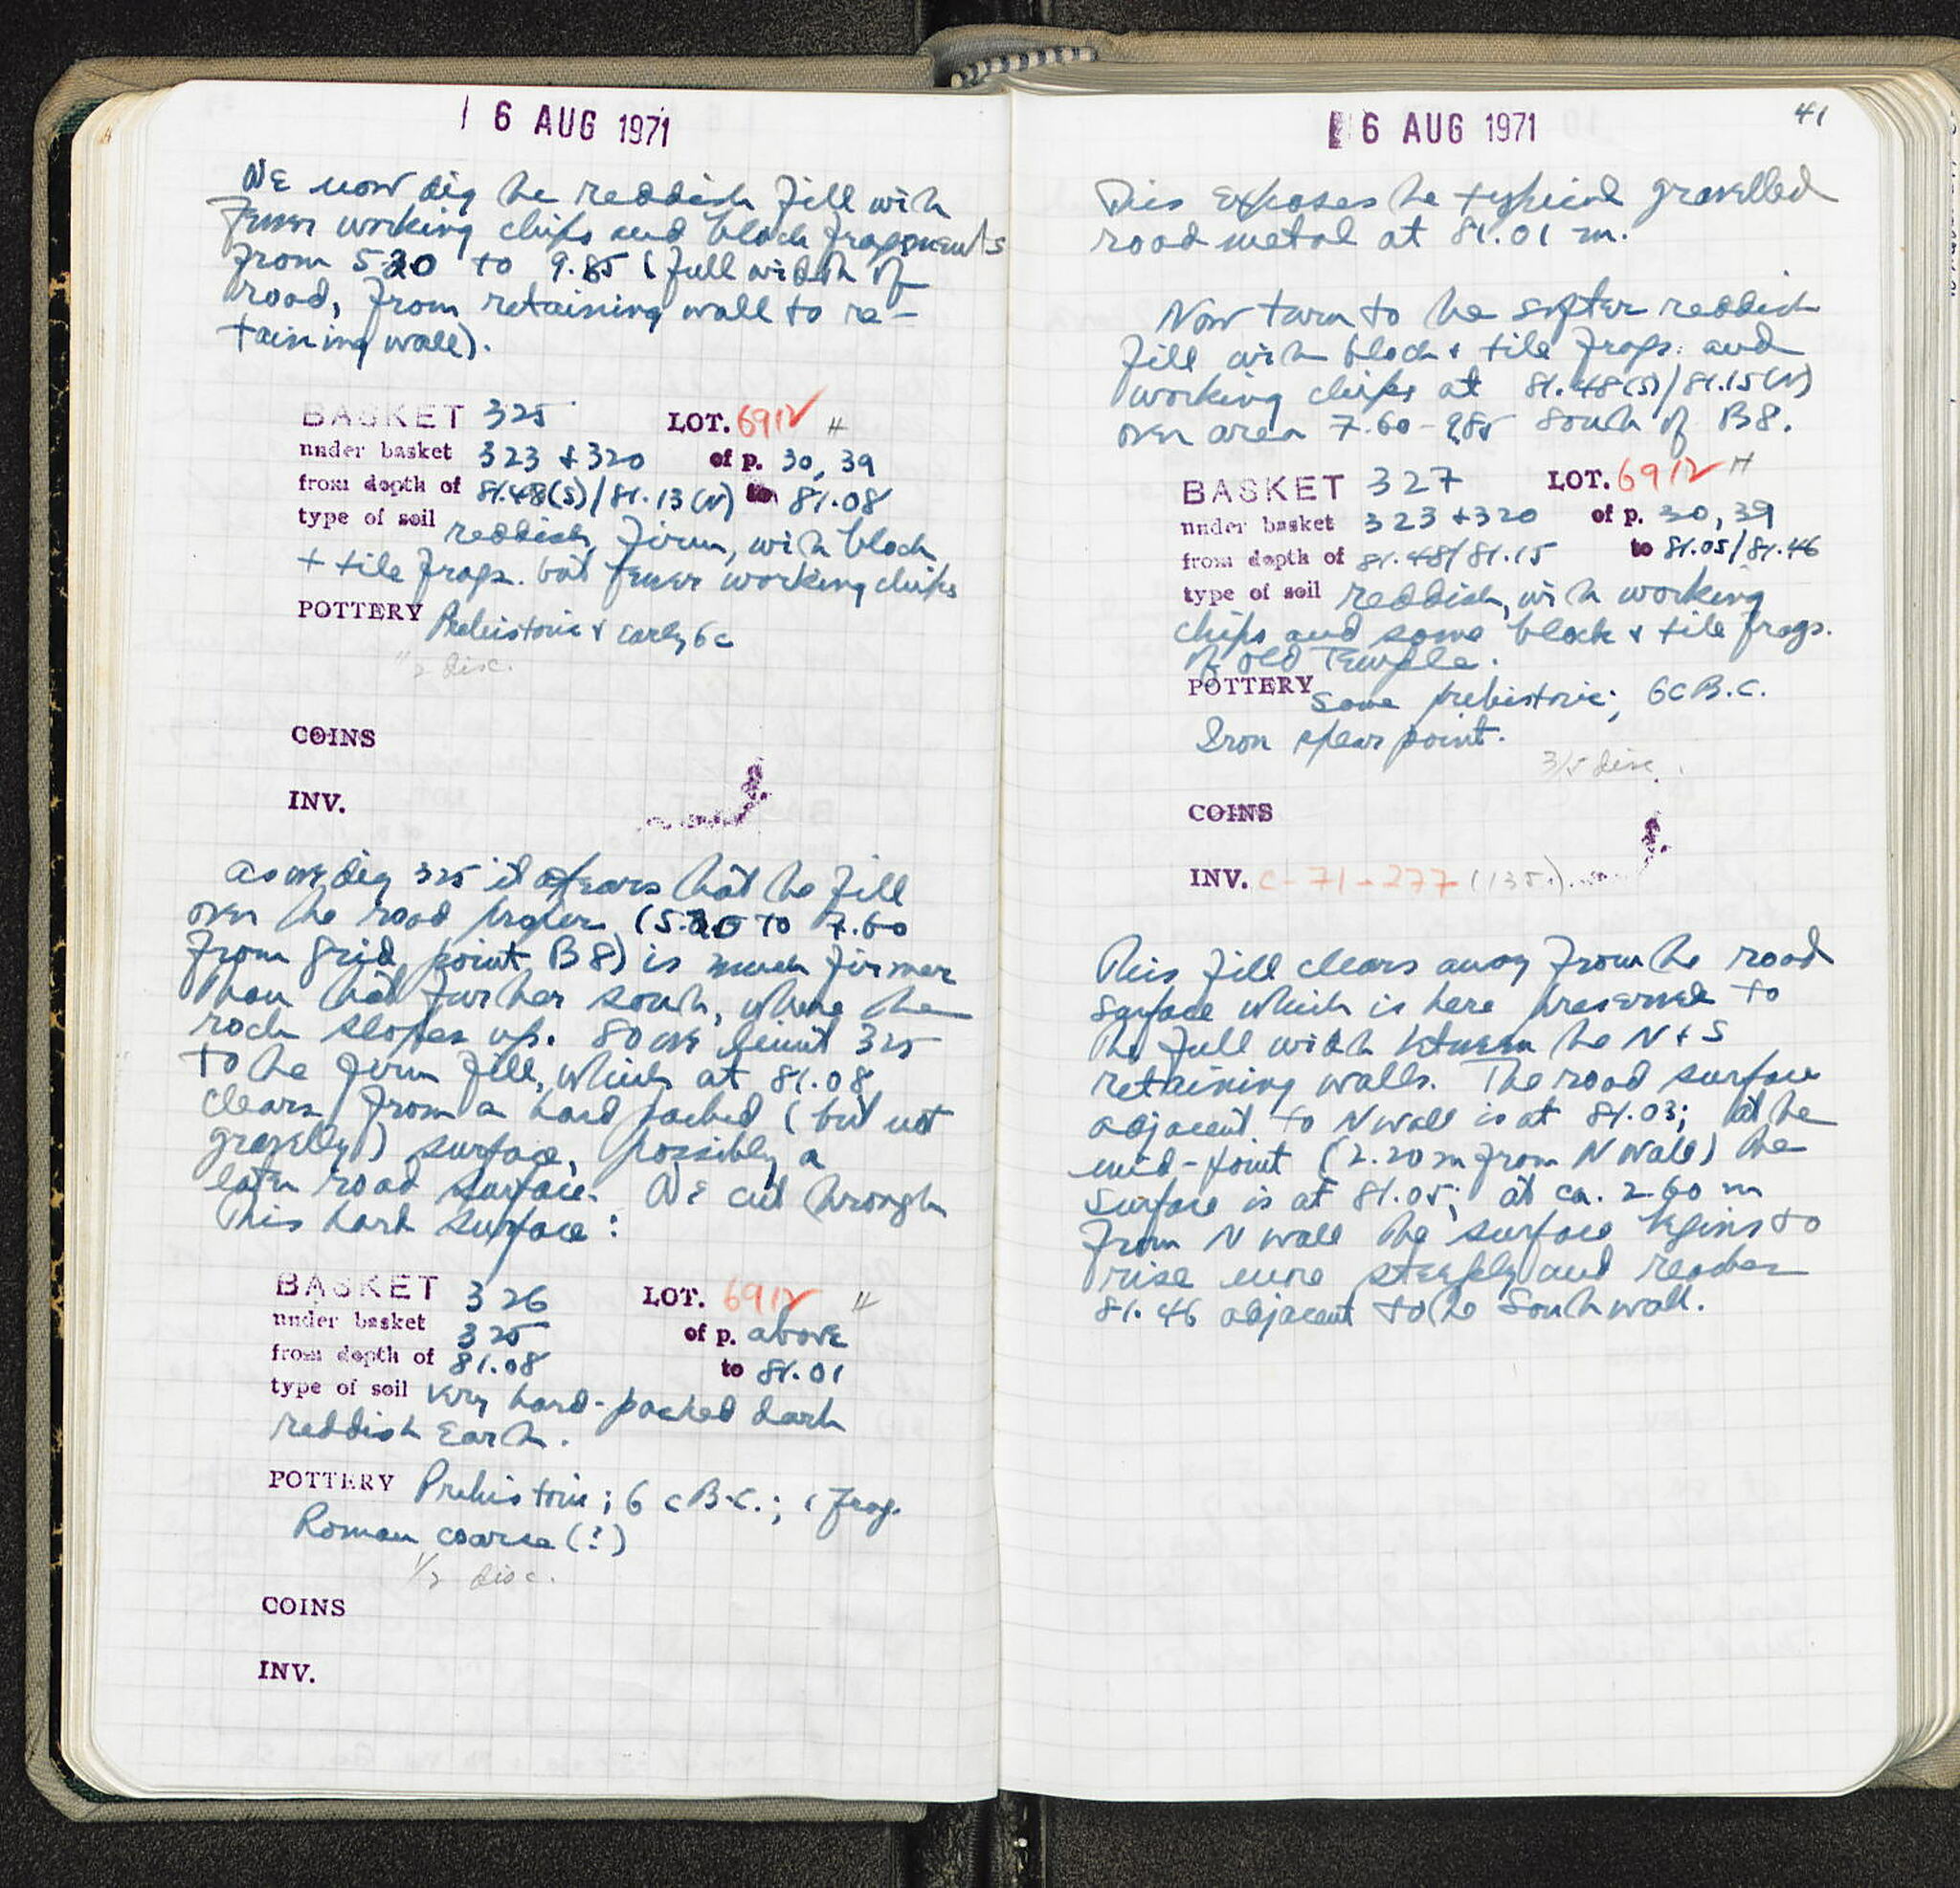 6 AUG 1971
We now dig the reddish fill with
fewer working chips and block fragments
from 5.20 to 9.85 (full width of
road, from retaining wall to re-
taining wall).
BASKET 325 LOT. 6912 H
under basket 323 + 320 of p. 30, 39
from depth of 81.48(S)/81.13(N) to 81.08
type of soil reddish, firm, with block
+ tile frags. but fewer working chips
POTTERY Prehistoric & early 6c
1/2 disc.
COINS
INV.
As we dig 325 it appears that the fill
over the road proper (5.20 to 7.60
from grid point B8) is much firmer
than that further south, where the
rock slopes up. So we limit 325
to the firm fill, which at 81.08
clears from a hard packed (but not
gravelly) surface, possibly a
later road surface. We cut through
this hard surface:
BASKET 326 LOT. 6912 H
under basket 325 of p. above
from depth of 81.08 to 81.01
type of soil very hard-packed dark
reddish earth.
POTTERY Prehistoric; 6 c B.C.; 1 frag.
Roman coarse (?)
1/2 disc.
COINS
INV.
6 AUG 1971
41
This exposes the typical gravelled
road metal at 81.01 m.
Now turn to the softer reddish
fill with block & tile frags. and
working chips at 81.48(S)/81.15(N)
over area 7.60-9.85 south of B8.
BASKET 327 LOT. 6912 H
under basket 323 + 320 of p. 30, 39
from depth of 81.48/81.15 to 81.05/81.46
type of soil reddish, with working
chips and some block & tile frags.
of old Temple.
POTTERY Some prehistoric; 6c B.C.
Iron spear point.
3/5 disc.
COINS
INV. C-71-277 (135).
This fill clears away from the road
surface which is here preserved to
the full width between the N + S
retaining walls. The road surface
adjacent to N wall is at 81.03; at the
mid-point (2.20 m from N wall) the
surface is at 81.05; at ca. 2.60 m
from N wall the surface begins to
rise more steeply and reaches
81.46 adjacent to the South wall.